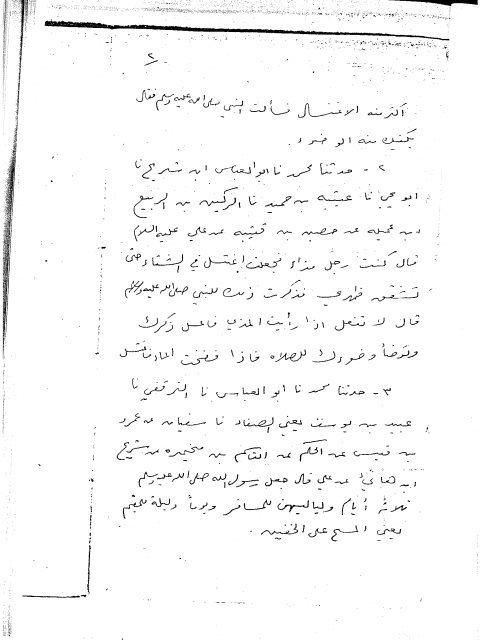 ٢
أكثر منه الاغتسال فسألت النبي صلى الله عليه وسلم فقال
يكفيك منه الوضوء .
٢ - حدثنا محمد نا ابو العباس ابن شريح نا
ابو يحيى نا عبيدة بن حميد نا الركين بن الربيع
عن حصين بن قبيصة عن علي عليه السلام
قال كنت رجل مذاء فجعلت اغتسل في الشتاء حتى
تشقق ظهري فذكرت ذلك للنبي صلى الله عليه وسلم
قال لا تفعل اذا رأيت المذي فاغسل ذكرك
وتوضأ وضوءك للصلاه فاذا فضخت الماء فاغتسل
٣ - حدثنا محمد نا ابو العباس نا الترقفي نا
بن يوسف يعني نا سفيان عن عمرو
بن قيس عن الحكم عن القاسم بن مخيمره عن شريح
ابن هانئ عن علي قال جعل رسول الله صلى الله عليه وسلم
ثلاثة أيام ولياليهن للمسافر ويوماً وليلة للمقيم
يعني المسح على الخفين .